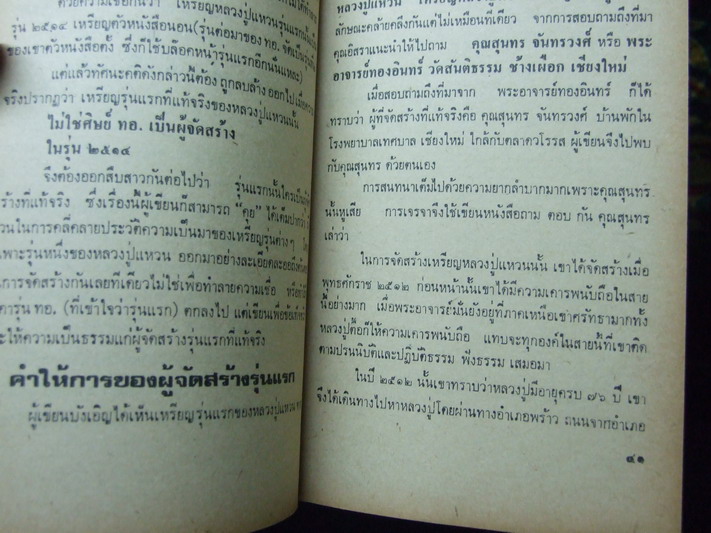 ด้วยความเชื่อกันว่า เหรียญหลวงปู่แหวนรุ่นแรกนั้น
รุ่น ๒๕๑๔ เหรียญตัวหนังสือนอน(รุ่นต่อมาของ ทอ. จัดเป็นรุ่น
ของเขาตัวหนังสือตั้ง ซึ่งก็ใช้บลอคหน้ารุ่นแรกอีกนั่นแหละ)
แต่แล้วทัศนะคติดังกล่าวนี้ต้อง ถูกลบล้าง ออกไป เมื่อความ
จริงปรากฏว่า เหรียญรุ่นแรกที่แท้จริงของหลวงปู่แหวนนั้น
ไม่ใช่ศิษย์ ทอ. เป็นผู้จัดสร้าง
ในรุ่น ๒๕๑๔
จึงต้องออกสืบสาวกันต่อไปว่า รุ่นแรกนั้นใครเป็น
ร้างที่แท้จริง ซึ่งเรื่องนี้ผู้เขียนก็สามารถ “คุย” ได้เต็มปากว่า
วนในการคลี่คลายประวัติความเป็นมาของเหรียญรุ่นต่างๆ
เพาะรุ่นหนึ่งของหลวงปู่แหวน ออกมาอย่างละเอียดละออถึง
การจัดสร้างกันเลยทีเดียวไม่ใช่เพื่อทำลายความเชื่อ หรือ
คารุ่น ทอ. (ที่เข้าใจว่ารุ่นแรก) ตกลงไป แต่เขียนเพื่อ
ะให้ความเป็นธรรมแก่ผู้จัดสร้างรุ่นแรกที่แท้จริง
คำให้การของผู้จัดสร้างรุ่นแรก
ผู้เขียนบังเอิญได้เห็นเหรียญรุ่นแรกของหลวงปู่แหวน
หลวงปู่แหวน
ลักษณะคล้ายคลึงกันแต่ไม่เหมือนทีเดียว จากการสอบถามถึงที่มา
คุณอิสราแนะนำให้ไปถาม คุณสุนทร จันทรวงศ์ หรือ พระ
อาจารย์ทองอินทร์ วัดสันติธรรม ช้างเผือก เชียงใหม่
เมื่อสอบถามถึงที่มาจาก พระอาจารย์ทองอินทร์ ก็ได้
ทราบว่า ผู้ที่จัดสร้างที่แท้จริงคือ คุณสุนทร จันทรวงศ์ บ้านพักใน
โรงพยาบาลเทศบาล เชียงใหม่ ใกล้กับตลาดวโรรส ผู้เขียนจึงไปพบ
กับคุณสุนทร ด้วยตนเอง
การสนทนาเต็มไปด้วยความยากลำบากมากเพราะคุณสุนทร
นั้นหูเสีย การเจรจาจึงใช้เขียนหนังสือถาม ตอบ กัน คุณสุนทร
เล่าว่า
ในการจัดสร้างเหรียญหลวงปู่แหวนนั้น เขาได้จัดสร้างเมื่อ
พุทธศักราช ๒๕๑๒ ก่อนหน้านั้นเขาได้มีความเคารพนับถือในสาย
นี้อย่างมาก เมื่อพระอาจารย์มั่นยังอยู่ที่ภาคเหนือเขาศรัทธามากทั้ง
หลวงปู่ตื้อก็ให้ความเคารพนับถือ แทบจะทุกองค์ในสายนี้ที่เขาติด
ตามปรนนิบัติและปฏิบัติธรรม ฟังธรรม เสมอมา
ในปี ๒๕๑๒ นั้นเขาทราบว่าหลวงปู่มีอายุครบ ๗๖ ปี เขา
จึงได้เดินทางไปหาหลวงปู่โดยผ่านทางอำเภอพร้าว ถนนจากอำเภอ
๔๑